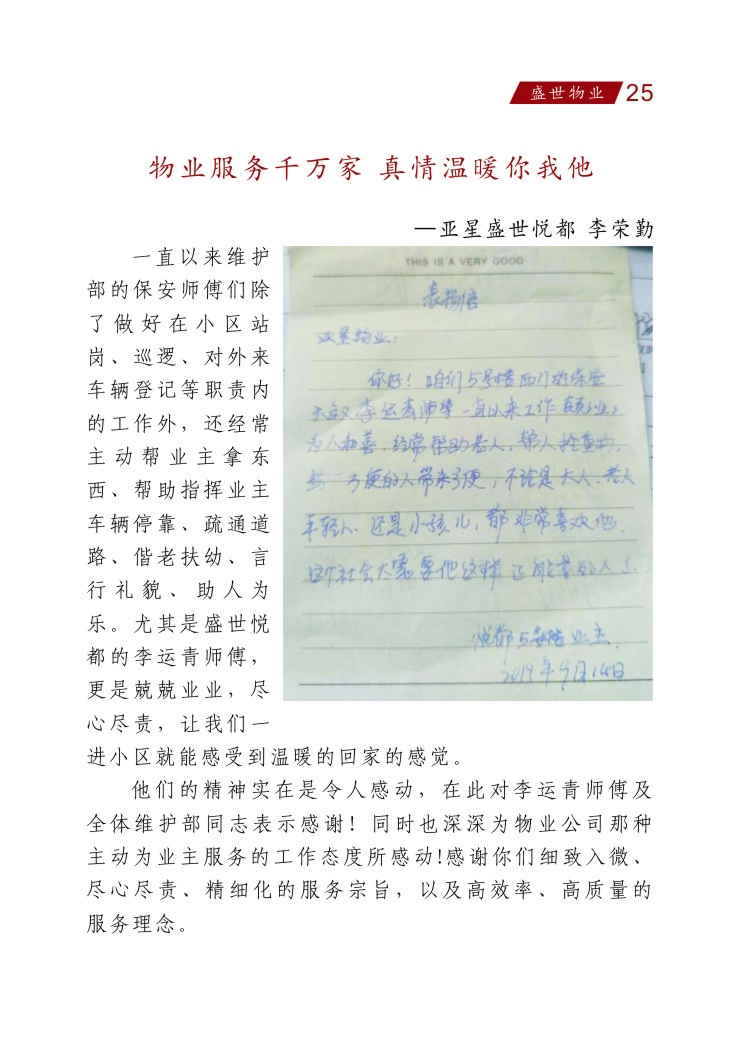 盛世物业 25
物业服务千万家 真情温暖你我他
—亚星盛世悦都 李荣勤
一直以来维护
部的保安师傅们除
了做好在小区站
岗、巡逻、对外来
车辆登记等职责内
的工作外，还经常
主动帮业主拿东
西、帮助指挥业主
车辆停靠、疏通道
路、偕老扶幼、言
行礼貌、助人为
乐。尤其是盛世悦
都的李运青师傅，
更是兢兢业业，尽
心尽责，让我们一
进小区就能感受到温暖的回家的感觉。
THIS IS A VERY GOOD
表扬信
亚星物业：
你好！咱们5号楼西门的保安
大叔李运青师傅一直以来工作
为人和善，经常帮助老人，帮人
便的人带来方便，不论是大人、老人
年轻人、还是小孩儿，都非常喜欢他
这个社会太需要他这样正能量的人了.
悦都5号楼业主.
2019年9月14日
他们的精神实在是令人感动，在此对李运青师傅及
全体维护部同志表示感谢！同时也深深为物业公司那种
主动为业主服务的工作态度所感动!感谢你们细致入微、
尽心尽责、精细化的服务宗旨，以及高效率、高质量的
服务理念。